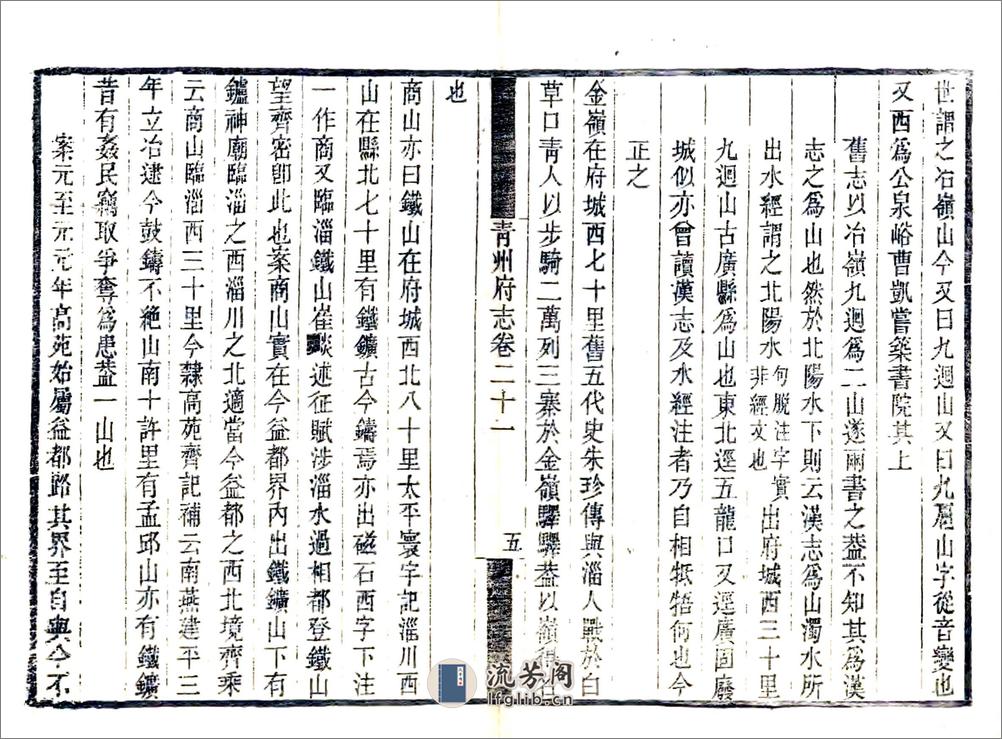 世謂之冶嶺山今又曰九迴山又曰九扈山字從音變也
又西爲公泉峪曹凱嘗築書院其上
舊志以冶嶺九迴爲二山遂兩書之蓋不知其爲漢
志之爲山也然於北陽水下則云漢志爲山濁水所
出水經謂之北陽水句脫注字實非經文也出府城西三十里
九迴山古廣縣爲山也東北逕五龍口又逕廣固廢
城似亦曾讀漢志及水經注者乃自相牴牾何也今
正之
金嶺在府城西七十里舊五代史朱珍傳與淄人戰於白
草口青人以步騎二萬列三寨於金嶺驛驛蓋以嶺得名
也
青州府志卷二十一
五
商山亦曰鐵山在府城西北八十里太平寰宇記淄川西
山在縣北七十里有鐵鑛古今鑄焉亦出磁石西字下注
一作商又臨淄鐵山崔琰述征賦涉淄水過相都登鐵山
望齊密卽此也案商山實在今益都界內出鐵鑛山下有
鑪神廟臨淄之西淄川之北適當今益都之西北境齊乘
云商山臨淄西三十里今隸高苑齊記補云南燕建平三
年立冶逮今鼓鑄不絶山南十許里有孟邱山亦有鐵鑛
昔有姦民竊取爭奪爲患蓋一山也
案元至元元年高苑始屬益都路其界至自與今不
流芳阁
lfglib.cn